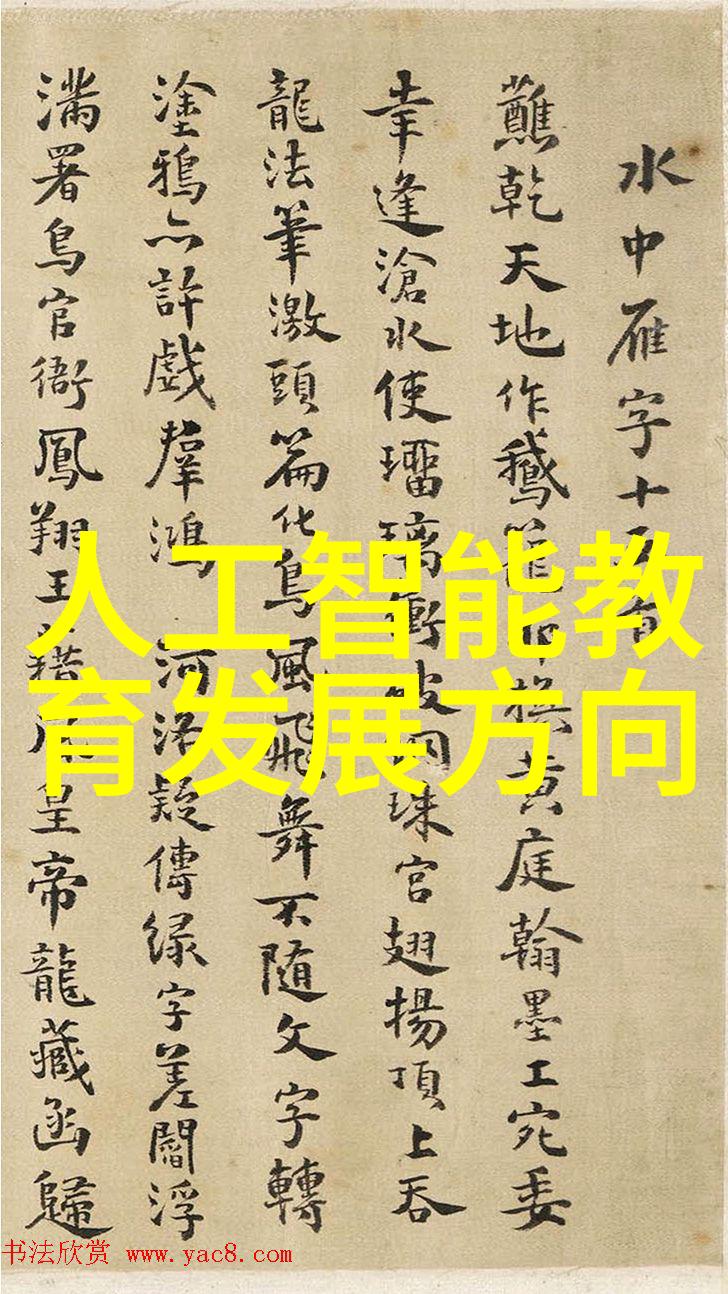 水中雁字十
蘸乾天地作鵝籠黃庭翰墨工宛委
幸逢滄水使璃衝珠宮翅揚頂上吞
龍法筆激頭篇化鳥風飛舞不随文字轉
塗鴉亦許戲羣鴻 河洛疑傳緑字差閻浮
滿署鳥官衙鳳翔王皇帝龍藏函歸
人工智能教
育发展方向
书法欣赏 www.yac8.com